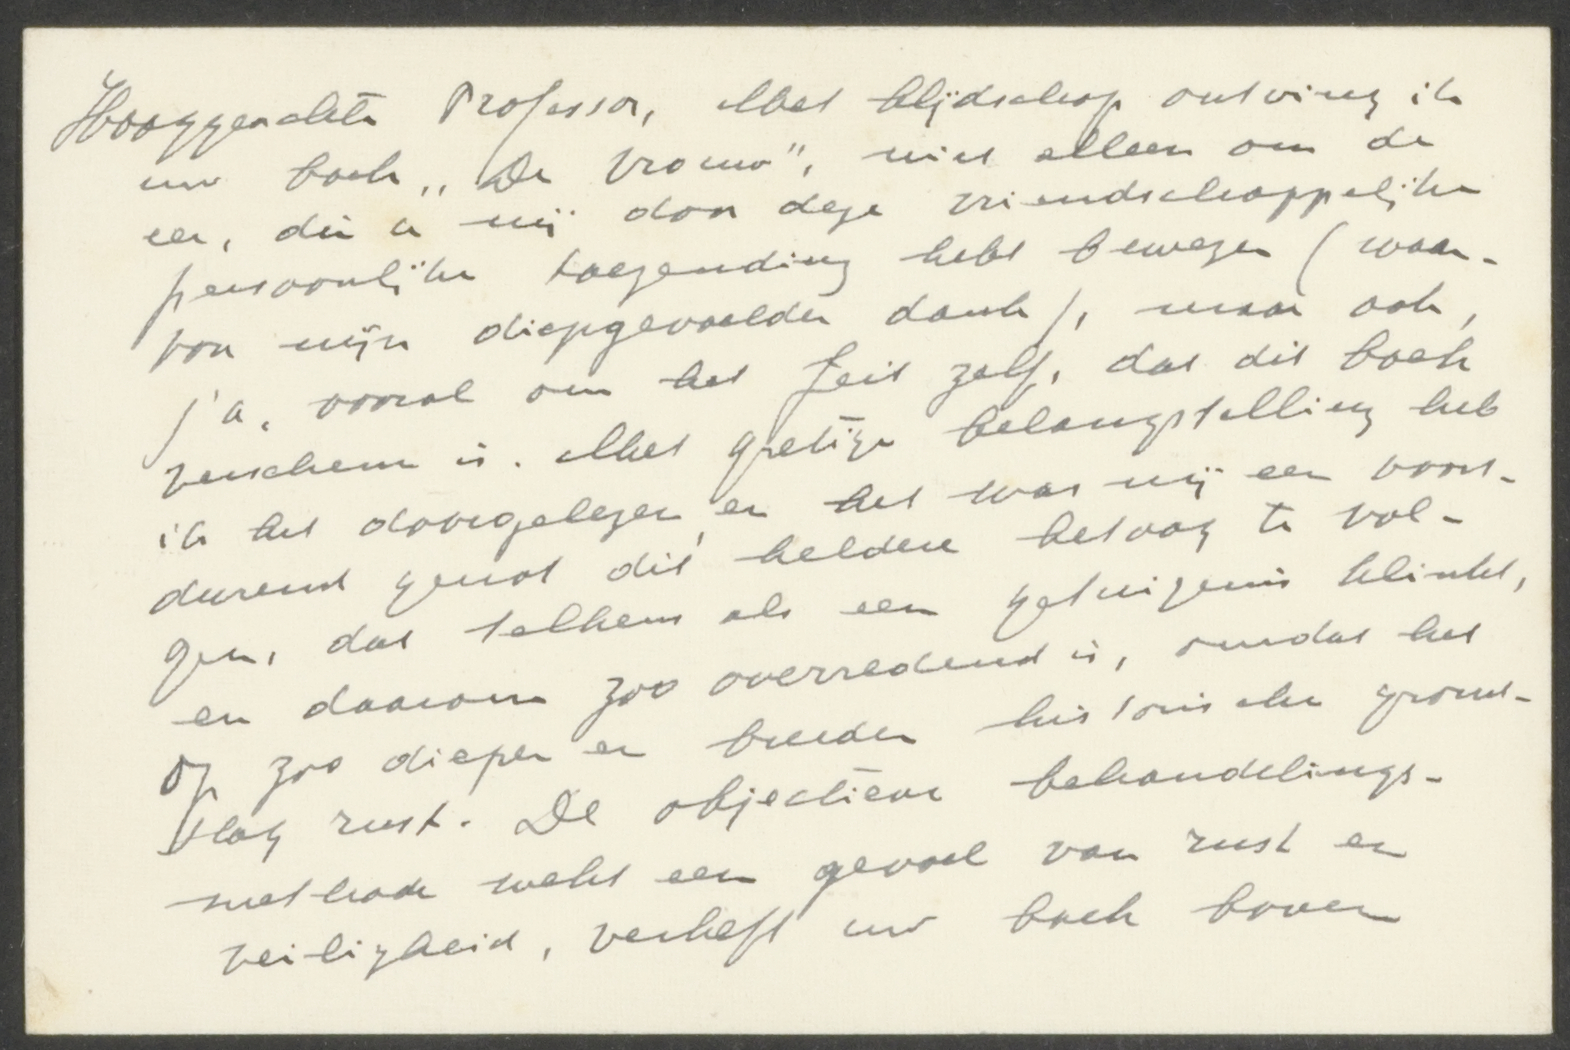 Hooggeachte Professor, Met blijdschap ontving ik
uw boek „De Vrouw", niet alleen om de
eer, die u mij door deze vriendschappelijke
persoonlijke toezending hebt bewezen (waar-
voor mijn diepgevoelden dank), maar ook,
ja, vooral om het feit zelf, dat dit boek
verschenen is. Met gretige belangstelling heb
ik het doorgelezen, en het was mij een voort-
durend genot dit heldere betoog te vol-
gen, dat telkens als een getuigenis klinkt,
en daarom zoo overredend is, omdat het
op zoo diepen en breeden historischen grond-
slag rust. De objectieve behandelings-
methode wekt een gevoel van rust en
veiligheid, verheft uw boek boven